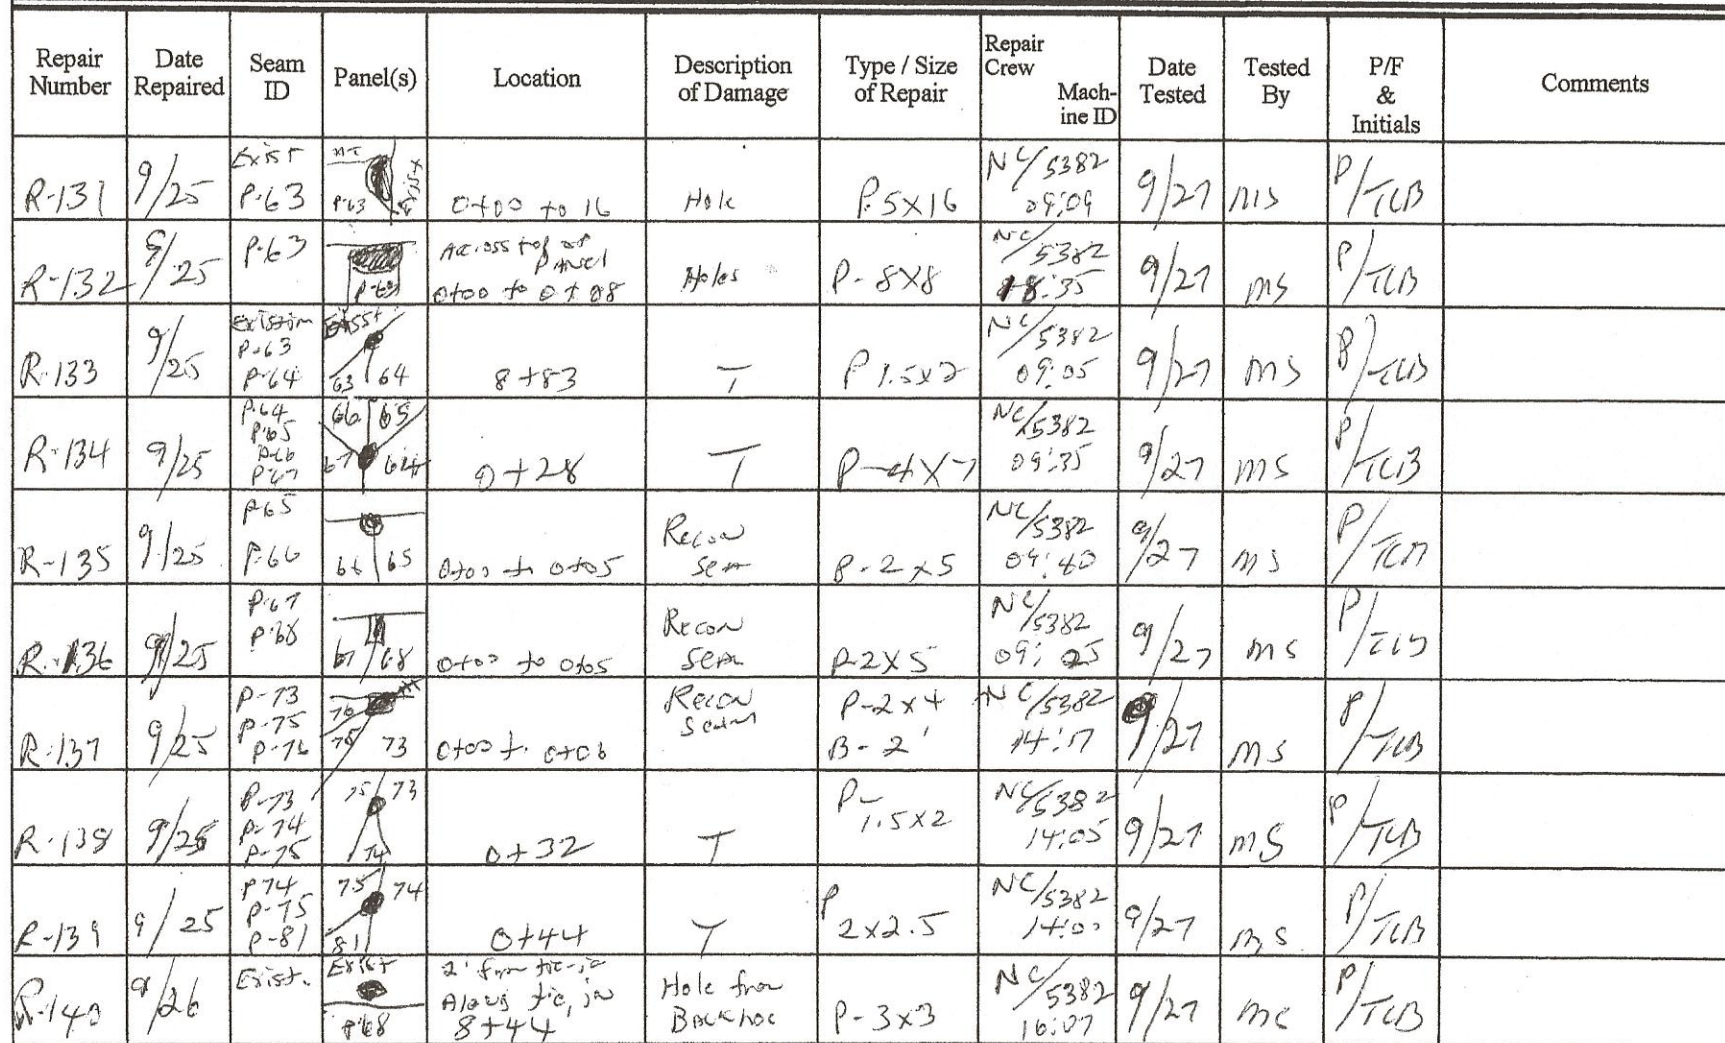 Repair Number
Date Repaired
Seam ID
Panel(s)
Location
Description of Damage
Type / Size of Repair
Repair Crew
Mach-ine ID
Date Tested
Tested By
P/F & Initials
Comments
R-131 9/25 Exist P-63 P-63 Exist 0+00 to 16 Hole P-5x16 NC/5382 09:09 9/27 MS P/TCB
R-132 9/25 P-63 P-63 Across top of Panel 0+00 to 0+08 Holes P-8x8 NC/5382 18:35 9/27 MS P/TCB
R-133 9/25 Existin P-63 P-64 Exist 63 64 8+83 T P 1.5x2 NC/5382 09:05 9/27 MS P/TCB
R-134 9/25 P-64 P-65 P-66 P-67 66 65 67 64 0+28 T P-4x7 NC/5382 09:35 9/27 MS P/TCB
R-135 9/25 P-65 P-66 66 65 0+00 to 0+05 Recon Seam P-2x5 NC/5382 09:40 9/27 MS P/TCB
R-136 9/25 P-67 P-68 67 68 0+00 to 0+05 Recon Seam P-2x5 NC/5382 09:25 9/27 MS P/TCB
R-137 9/25 P-73 P-75 P-76 76 75 73 0+00 to 0+06 Recon Seam P-2x4 B-2' NC/5382 14:17 9/27 MS P/TCB
R-138 9/25 P-73 P-74 P-75 75 73 74 0+32 T P-1.5x2 NC/5382 14:05 9/27 MS P/TCB
R-139 9/25 P74 P-75 P-81 75 74 81 0+44 T P 2x2.5 NC/5382 14:00 9/27 MS P/TCB
R-140 9/26 Exist. Exist P-68 2' from tie-in Along tie-in 8+44 Hole from Backhoe P-3x3 NC/5382 16:07 9/27 MS P/TCB